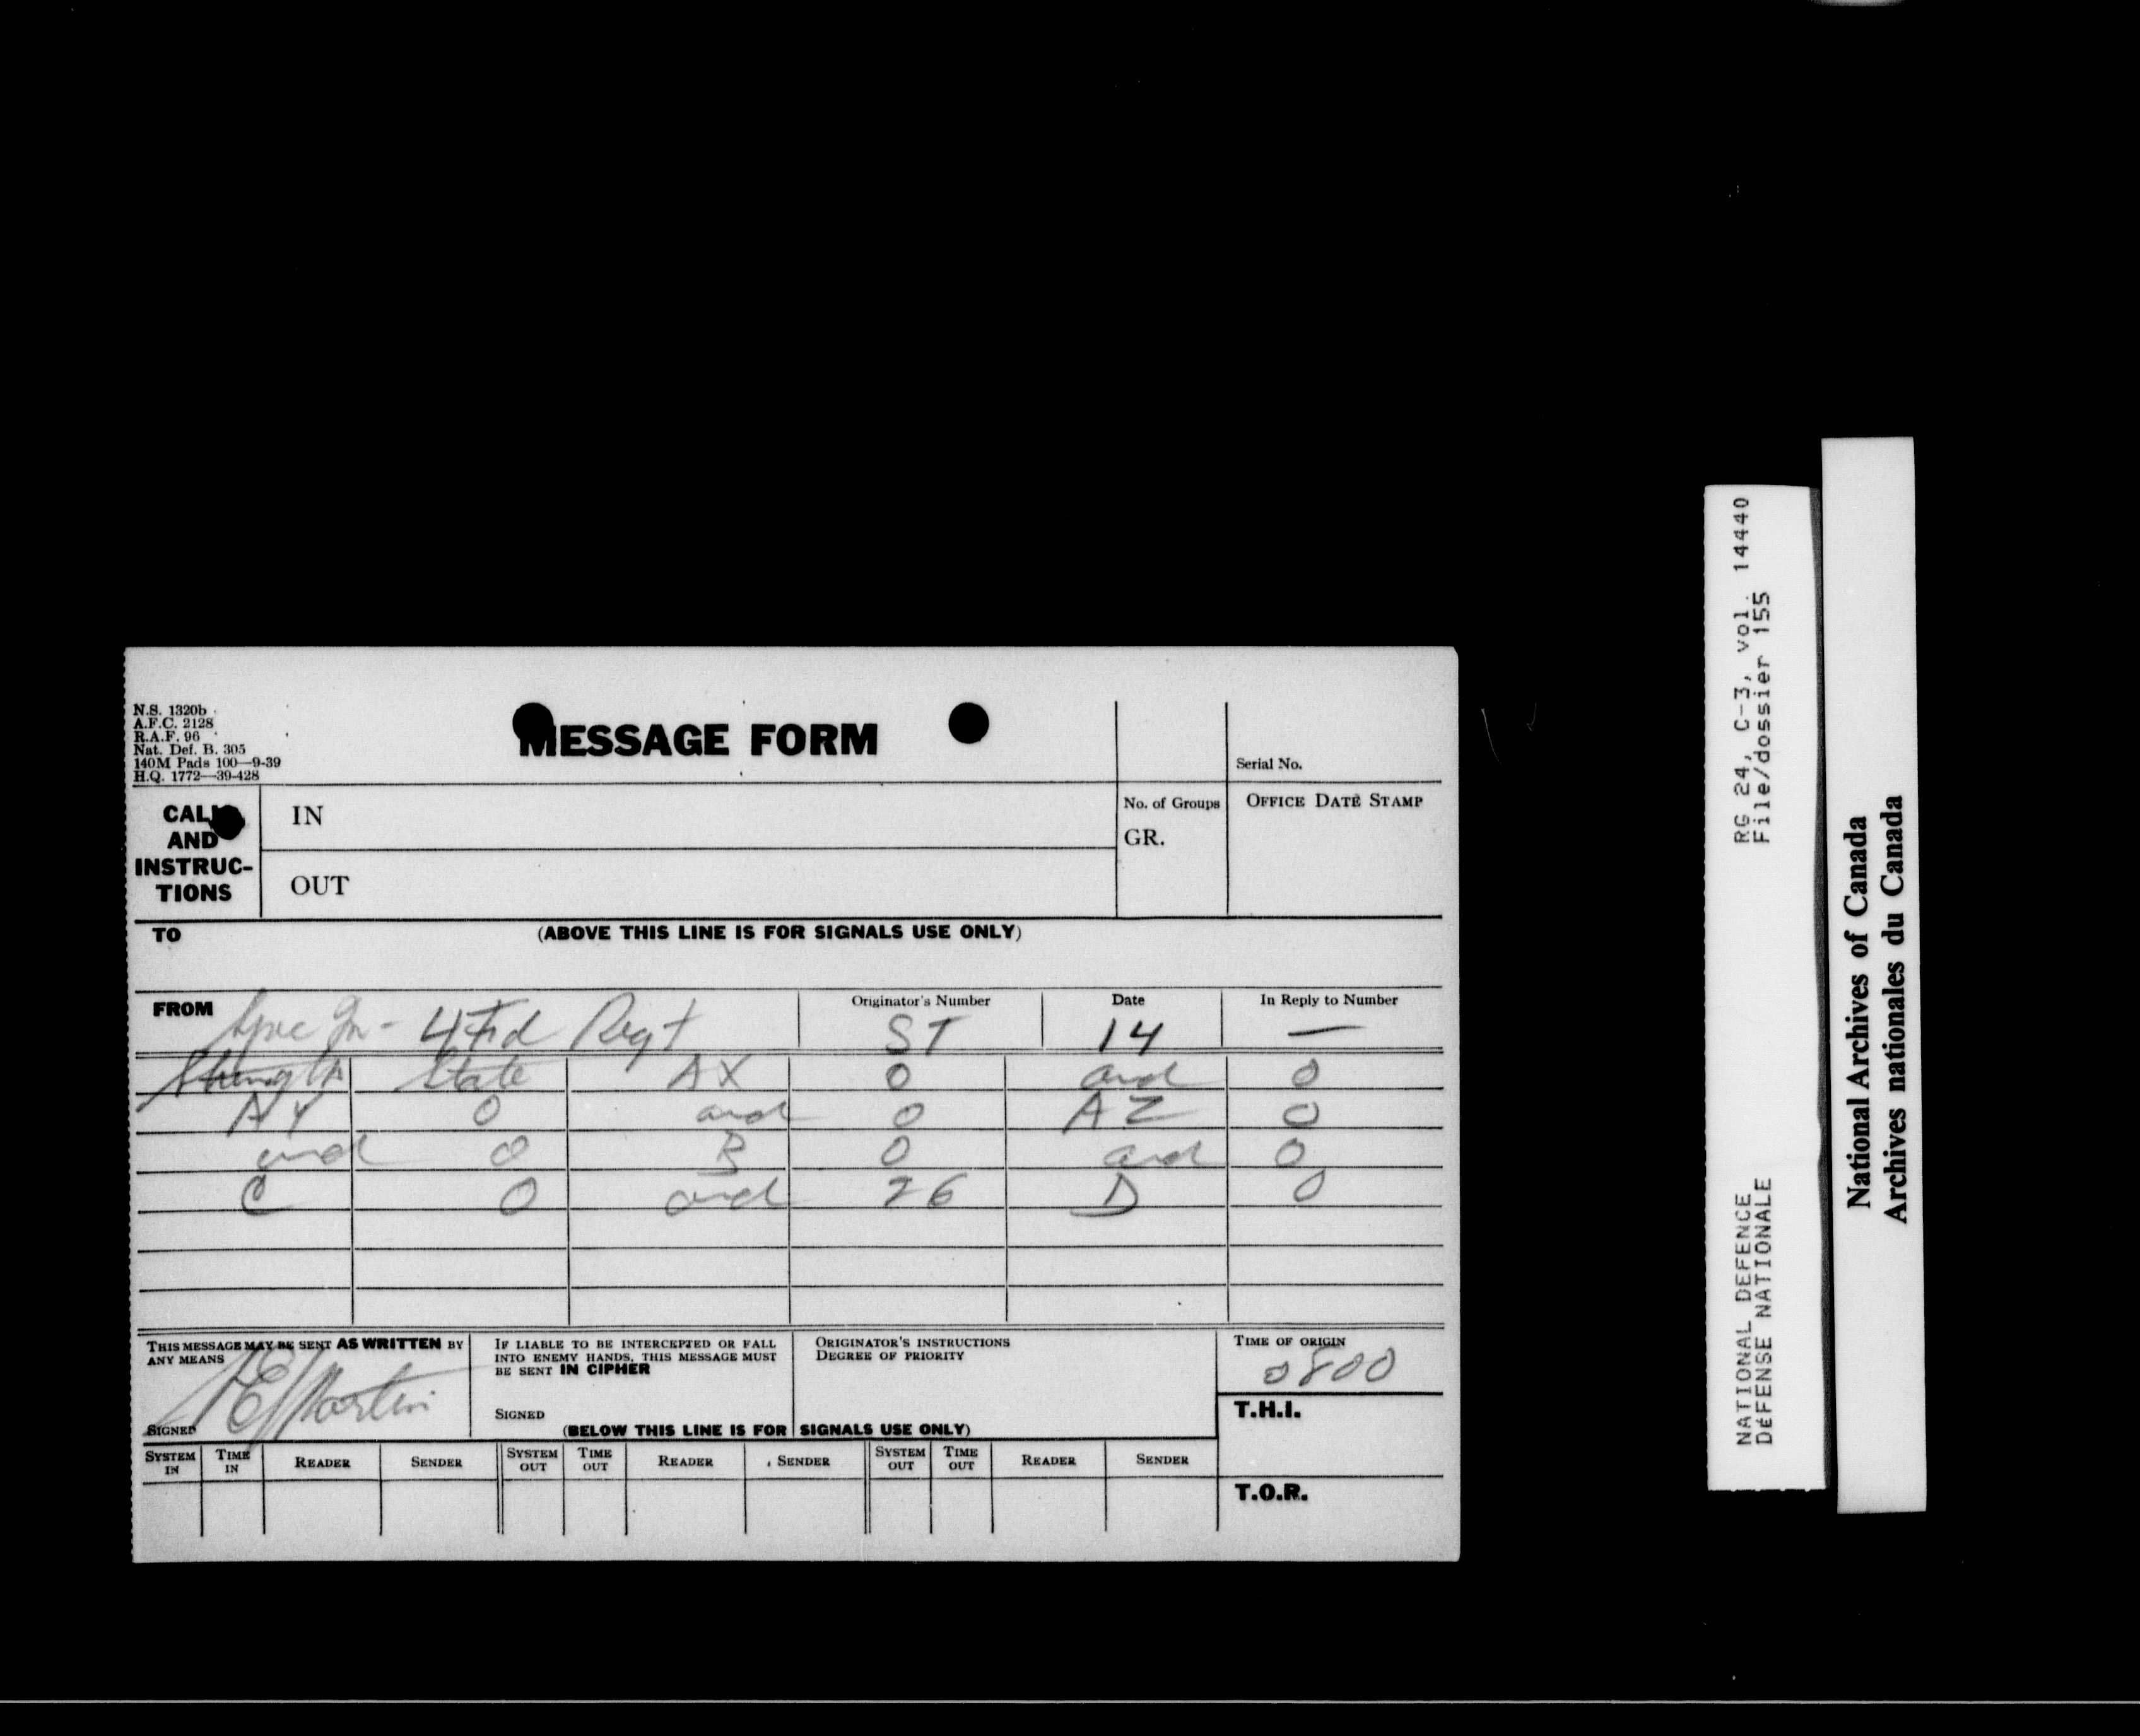 N.S. 1320b
A.F.C. 2128
R.A.F. 96
Nat. Def. B. 305
140M Pads 100—9-39
H.Q. 1772—39-428
MESSAGE FORM
Serial No.
CALL
AND
INSTRUC-
TIONS
IN
OUT
No. of Groups
GR.
OFFICE DATE STAMP
TO
(ABOVE THIS LINE IS FOR SIGNALS USE ONLY)
FROM 4 Fd Regt
Originator's Number
ST
Date
14
In Reply to Number
—
Strength State AX 0 and 0
AY 0 and 0 AZ 0
and 0 B 0 and 0
C 0 and 26 D 0
THIS MESSAGE MAY BE SENT AS WRITTEN BY
ANY MEANS
Martin
SIGNED
IF LIABLE TO BE INTERCEPTED OR FALL
INTO ENEMY HANDS, THIS MESSAGE MUST
BE SENT IN CIPHER
SIGNED
ORIGINATOR'S INSTRUCTIONS
DEGREE OF PRIORITY
TIME OF ORIGIN
0800
T.H.I.
(BELOW THIS LINE IS FOR SIGNALS USE ONLY)
SYSTEM IN TIME IN READER SENDER SYSTEM OUT TIME OUT READER SENDER SYSTEM OUT TIME OUT READER SENDER
T.O.R.
NATIONAL DEFENCE RG 24, C-3, vol. 14440
DÉFENSE NATIONALE File/dossier 155
National Archives of Canada
Archives nationales du Canada